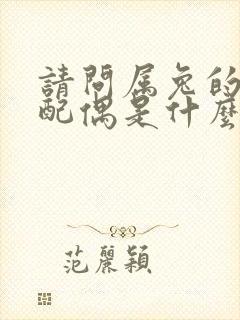 請問属兔的
配偶是什麼
范麗穎